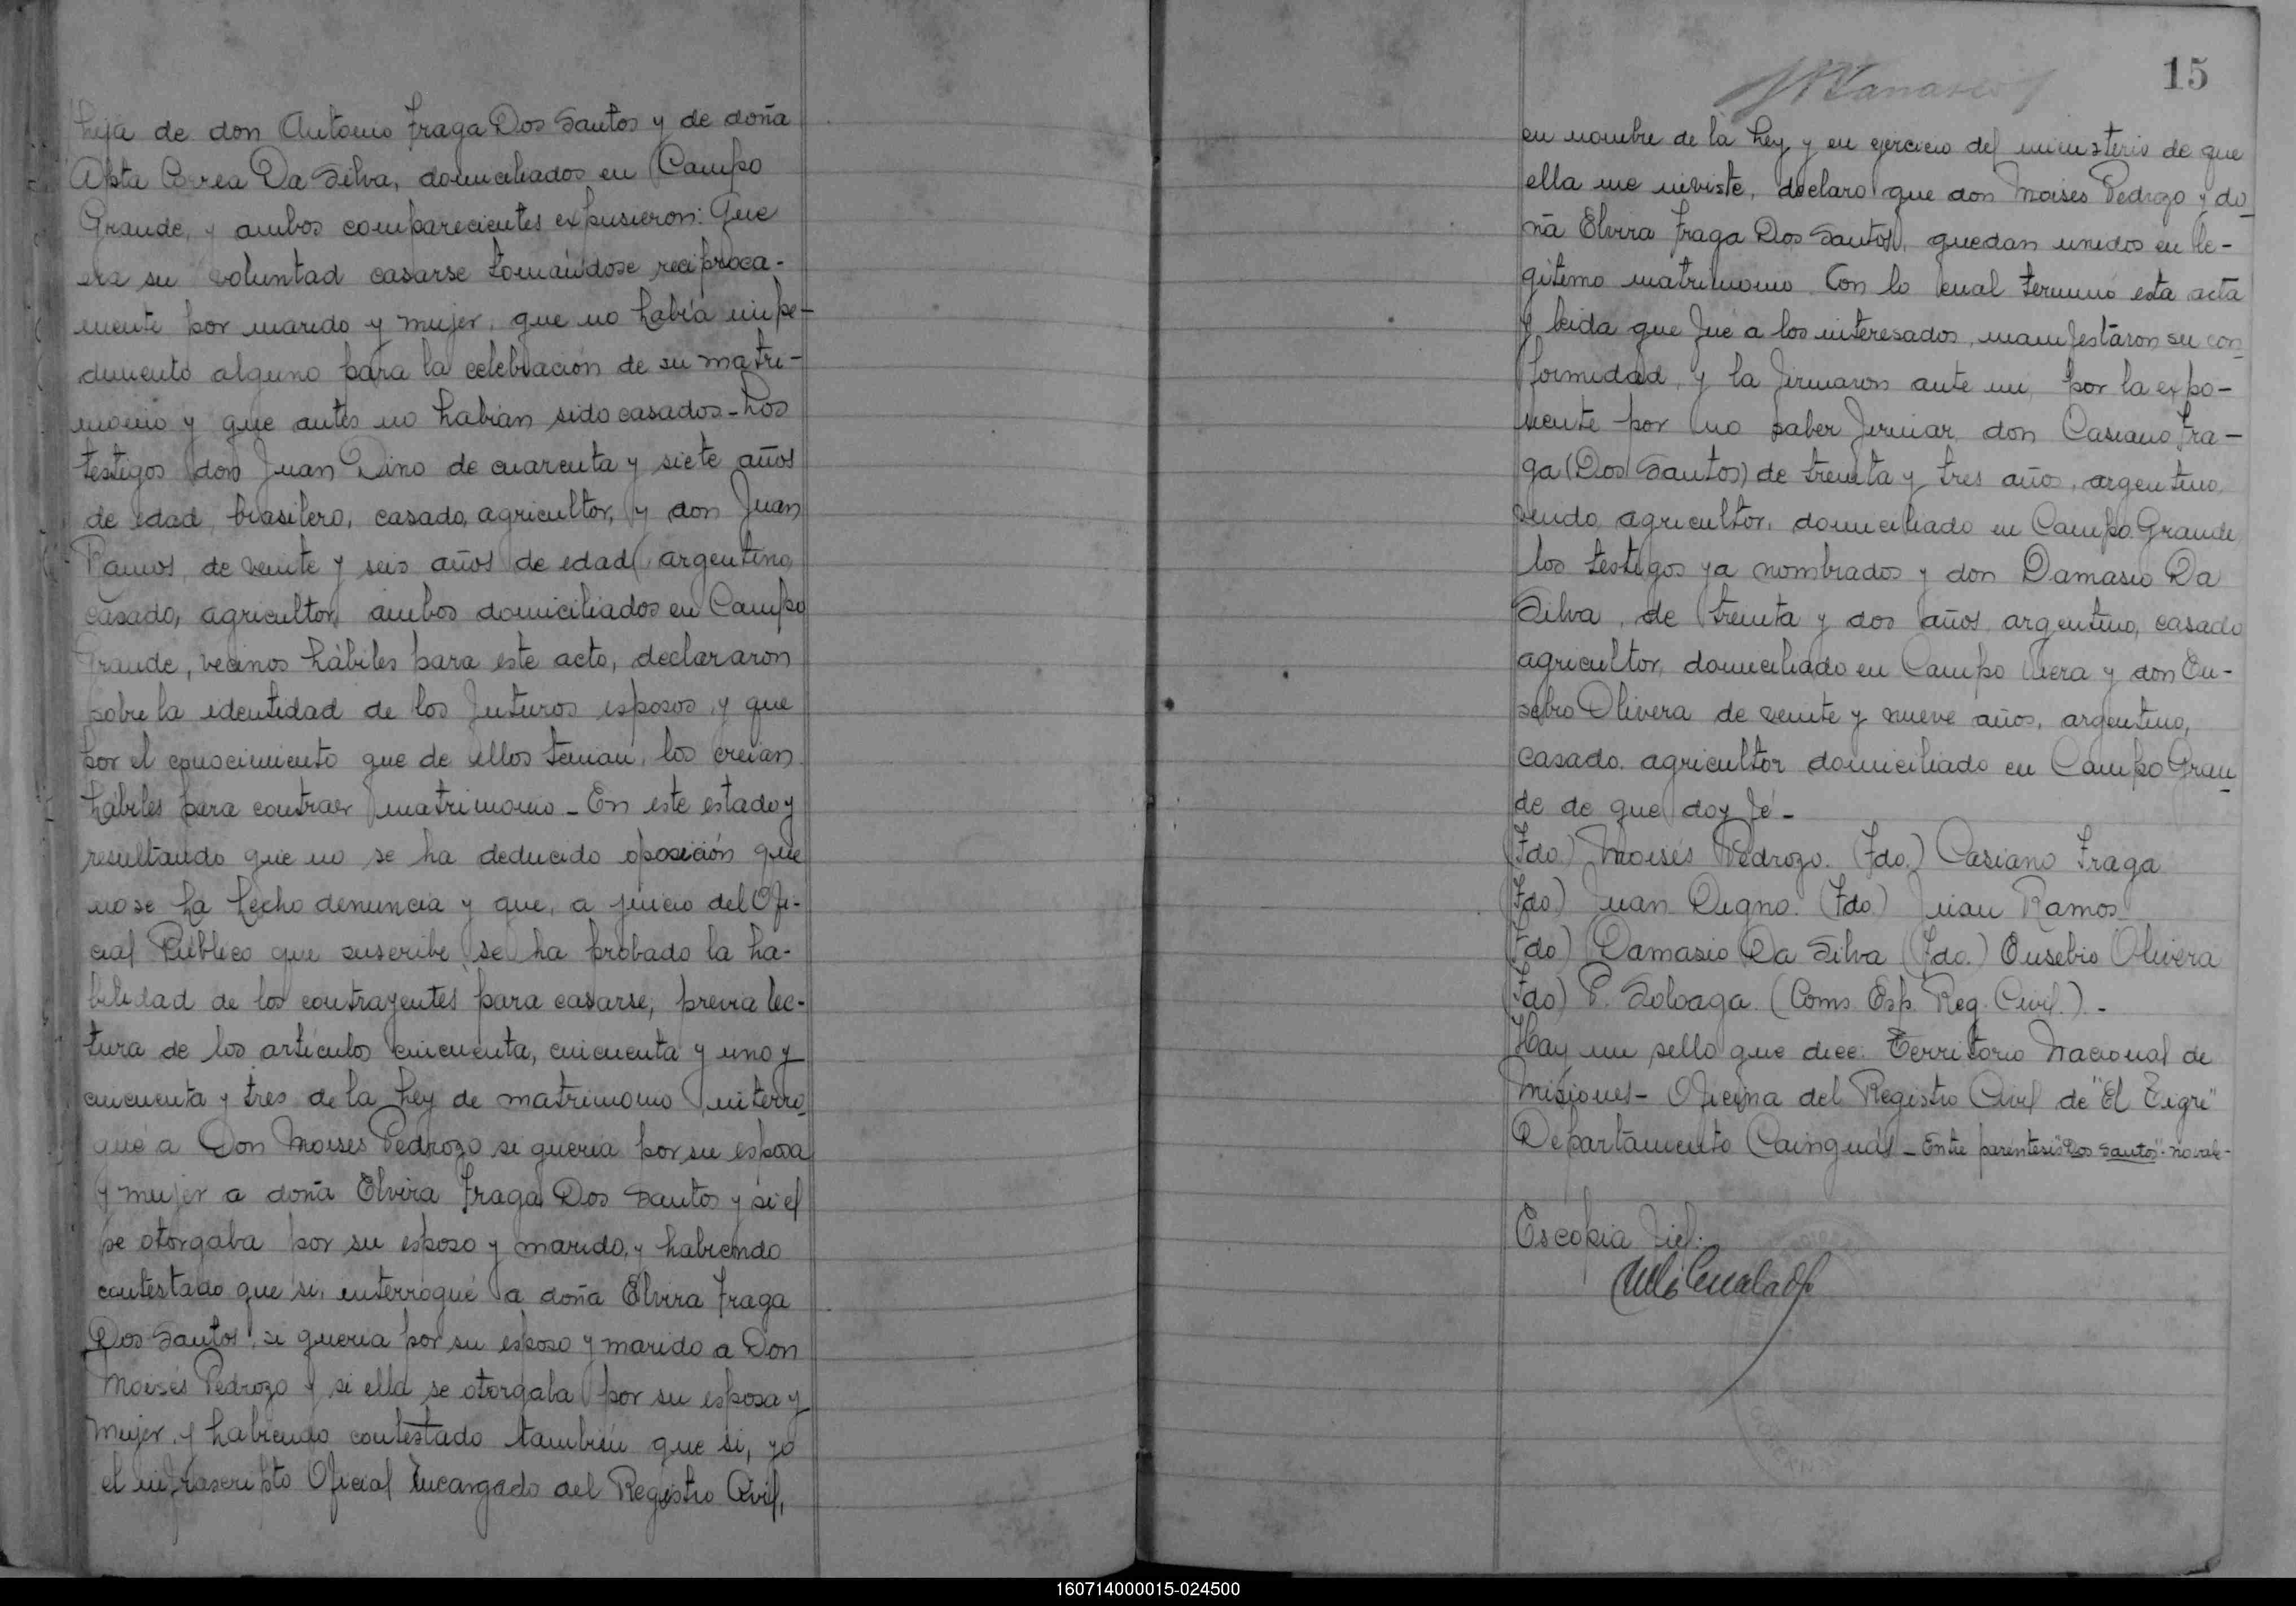 hija de don Antonio Fraga Dos Santos y de doña
Apta Correa Da Silva, domiciliados en Campo
Grande, y ambos comparecientes expusieron: Que
era su voluntad casarse tomándose recíproca-
mente por marido y mujer, que no había impe-
dimento alguno para la celebración de su matri-
monio y que antes no habían sido casados - Los
testigos don Juan Dino de cuarenta y siete años
de edad, brasilero, casado, agricultor, y don Juan
Ramos, de veinte y seis años de edad, argentino,
casado, agricultor, ambos domiciliados en Campo
Grande, vecinos hábiles para este acto, declararon
sobre la identidad de los futuros esposos, y que
por el conocimiento que de ellos tenían, los creían
hábiles para contraer matrimonio - En este estado y
resultando que no se ha deducido oposición que
no se ha hecho denuncia y que, a juicio del Ofi-
cial Público que suscribe, se ha probado la ha-
bilidad de los contrayentes para casarse, previa lec-
tura de los artículos cincuenta, cincuenta y uno y
cincuenta y tres de la Ley de matrimonio interro-
gué a Don Moises Pedrozo si quería por su esposa
y mujer a doña Elvira Fraga Dos Santos y si el
se otorgaba por su esposo y marido, y habiendo
contestado que si, interrogué a doña Elvira Fraga
Dos Santos, si quería por su esposo y marido a Don
Moisés Pedrozo y si ella se otorgaba por su esposa y
mujer, y habiendo contestado también que si, yo
el infrascripto Oficial Encargado del Registro Civil,
15
en nombre de la Ley y en ejercicio del ministerio de que
ella me inviste, declaro que don Moises Pedrozo y do-
ña Elvira Fraga Dos Santos, quedan unidos en le-
gítimo matrimonio. Con lo cual terminó esta acta
y leida que fué a los interesados, manifestaron su con-
formidad, y la firmaron ante mi, por la expo-
nente por no saber firmar, don Casiano Fra-
ga (Dos Santos) de treinta y tres años, argentino,
viudo, agricultor, domiciliado en Campo Grande,
los testigos ya nombrados y don Damasio Da
Silva, de treinta y dos años, argentino, casado
agricultor, domiciliado en Campo Viera y don Eu-
sebio Olivera de veinte y nueve años, argentino,
casado, agricultor domiciliado en Campo Gran-
de de que doy fé -
(Fdo.) Moisés Pedrozo. (Fdo.) Casiano Fraga
(Fdo.) Juan Digno. (Fdo.) Juan Ramos
(Fdo.) Damasio Da Silva (Fdo.) Eusebio Olivera
(Fdo) P. Soloaga. (Coms. Esp. Reg. Civil.) -
Hay un sello que dice: Territorio Nacional de
Misiones - Oficina del Registro Civil de "El Tigre"
Departamento Cainguás - Entre parentesis "Dos Santos" - no vale -
Es copia fiel:
160714000015-024500